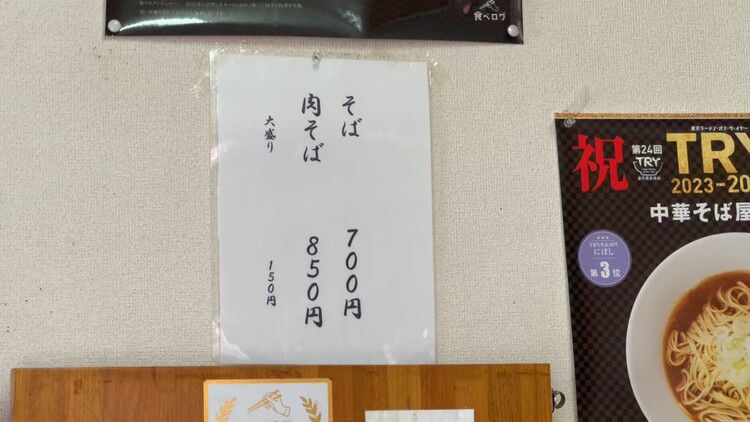 食べログ
そば 700円
肉そば 850円
大盛り 150円
祝
第24回
TRY
TRY
2023-20
中華そば屋
にぼし
第3位